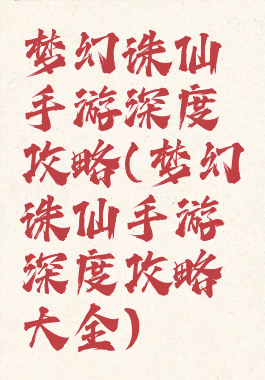 梦幻诛仙
手游深度
攻略(梦幻
诛仙手游
深度攻略
大全)